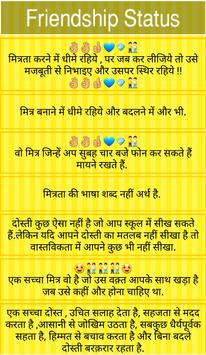 Friendship Status
✌🏼👌🏼👍🏼💙💎👬
मित्रता करने में धीमे रहिये , पर जब कर लीजिये तो उसे
मजबूती से निभाइए और उसपर स्थिर रहिये !!
✌🏼👌🏼👍🏼💙💎👬
मित्र बनाने में धीमे रहिये और बदलने में और भी.
✌🏼👌🏼👍🏼💙💎👬
वो मित्र जिन्हें अप सुबह चार बजे फोन कर सकते हैं
मायने रखते हैं.
मित्रता की भाषा शब्द नहीं अर्थ है.
दोस्ती कुछ ऐसा नहीं है जो आप स्कूल में सीख सकते
हैं.लेकिन यदि आपने दोस्ती का मतलब नहीं सीखा है तो
वास्तविकता में आपने कुछ भी नहीं सीखा है.
एक सच्चा मित्र वो है जो उस वक़्त आपके साथ खड़ा है
जब उसे कहीं और होना चाहिए था.
एक सच्चा दोस्त , उचित सलाह देता है, सहजता से मदद
करता है ,आसानी से जोखिम उठता है, सबकुछ धैर्यपूर्वक
सहता है, हिम्मत से बचाव करता है और बिना बदले
दोस्ती बरक़रार रहता है.